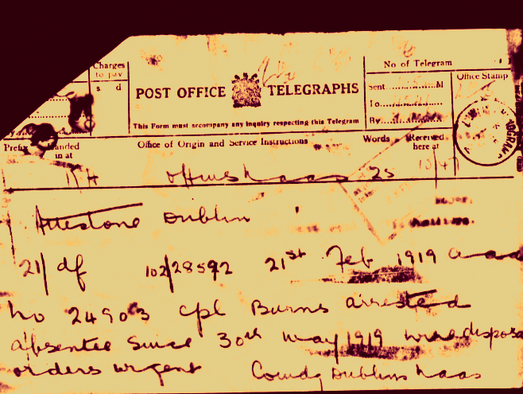 Charges to pay
s d
No of Telegram
Office Stamp
POST OFFICE TELEGRAPHS
Sent M
To
By
This Form must accompany any inquiry respecting this Telegram
Prefix Handed in at
Office of Origin and Service Instructions
Words
Received here at
Naas 25
Dublin
21/ df 102/28592 21st Feb 1919 aaa
No 24903 cpl Burns arrested
absentee since 30th May 1919 wire disposal
orders urgent Comdg Dublins Naas